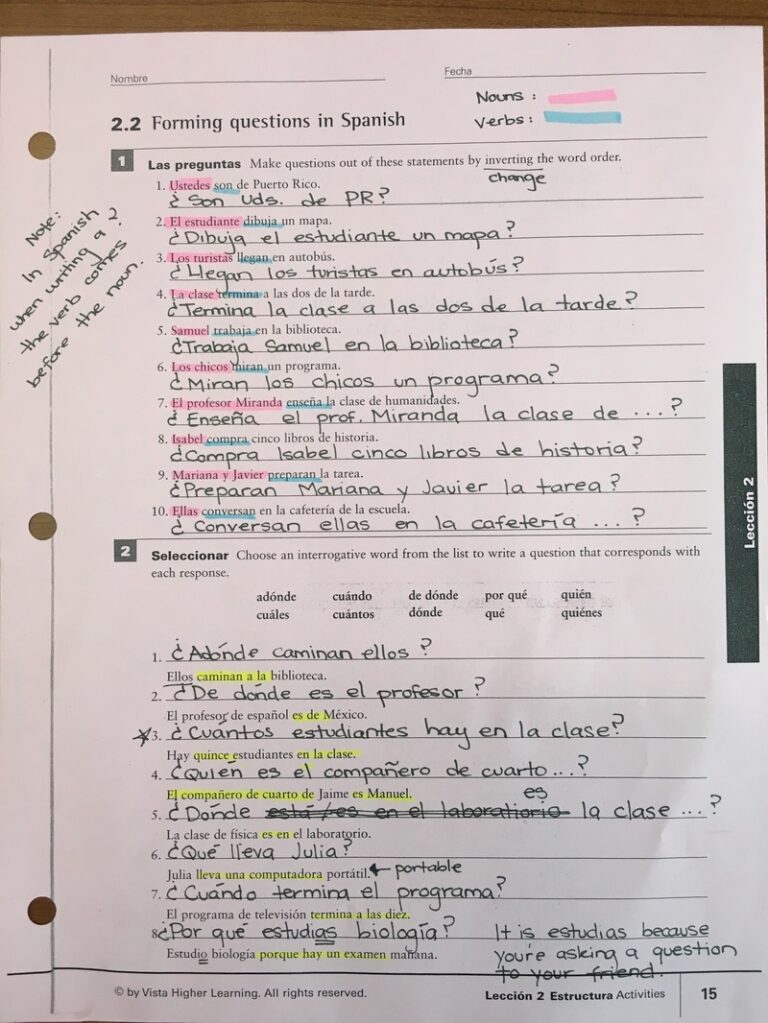 Nombre
Fecha
Nouns :
Verbs :
2.2 Forming questions in Spanish
1 Las preguntas Make questions out of these statements by inverting the word order.
change
1. Ustedes son de Puerto Rico.
¿ Son Uds. de PR?
2. El estudiante dibuja un mapa.
¿Dibuja el estudiante un mapa?
3. Los turistas llegan en autobús.
¿Llegan los turistas en autobús?
4. La clase termina a las dos de la tarde.
¿Termina la clase a las dos de la tarde?
5. Samuel trabaja en la biblioteca.
¿Trabaja Samuel en la biblioteca?
6. Los chicos miran un programa.
¿Miran los chicos un programa?
7. El profesor Miranda enseña la clase de humanidades.
¿ Enseña el prof. Miranda la clase de ...?
8. Isabel compra cinco libros de historia.
¿Compra Isabel cinco libros de historia?
9. Mariana y Javier preparan la tarea.
¿Preparan Mariana y Javier la tarea?
10. Ellas conversan en la cafetería de la escuela.
¿ Conversan ellas en la cafetería ...?
Note:
In Spanish
when writing a ?
the verb comes
before the noun.
2 Seleccionar Choose an interrogative word from the list to write a question that corresponds with
each response.
adónde cuándo de dónde por qué quién
cuáles cuántos dónde qué quiénes
1. ¿Adónde caminan ellos ?
Ellos caminan a la biblioteca.
2. ¿De dónde es el profesor ?
El profesor de español es de México.
3. ¿Cuántos estudiantes hay en la clase?
Hay quince estudiantes en la clase.
4. ¿Quién es el compañero de cuarto ...?
El compañero de cuarto de Jaime es Manuel.
es
5. ¿Dónde está/es en el laboratiorio la clase ...?
La clase de física es en el laboratorio.
6. ¿Qué lleva Julia?
Julia lleva una computadora portátil. ← portable
7. ¿Cuándo termina el programa?
El programa de televisión termina a las diez.
8. ¿Por qué estudias biología?
Estudio biología porque hay un examen mañana.
It is estudias because
you're asking a question
to your friend.
© by Vista Higher Learning. All rights reserved.
Lección 2 Estructura Activities 15
Lección 2